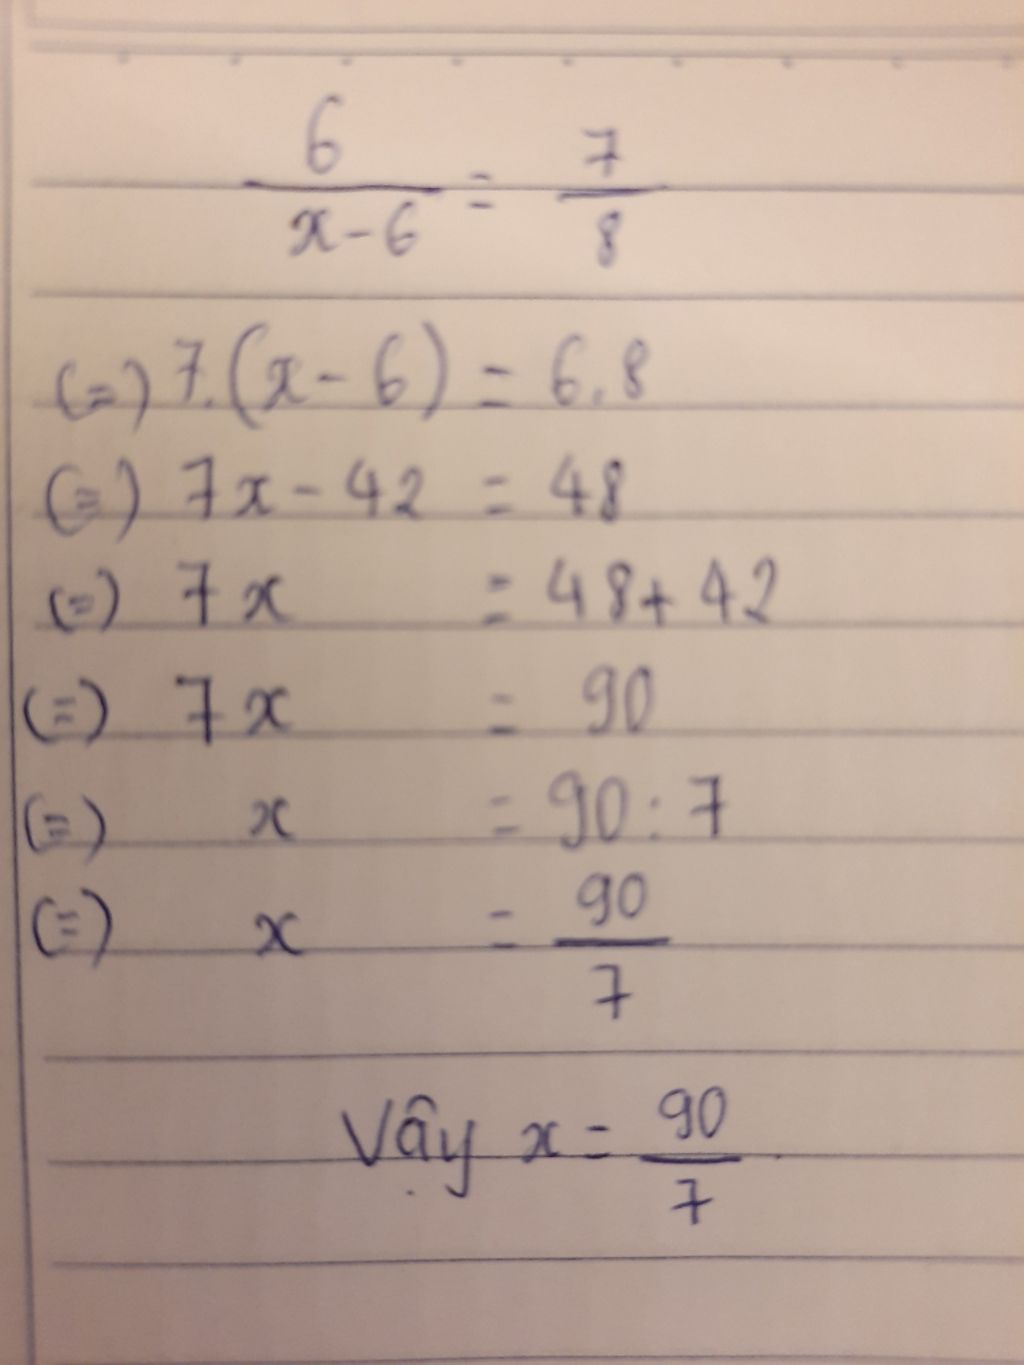 6/(x-6) = 7/8
(=) 7.(x-6) = 6.8
(=) 7x-42 = 48
(=) 7x = 48+42
(=) 7x = 90
(=) x = 90:7
(=) x = 90/7
Vậy x = 90/7